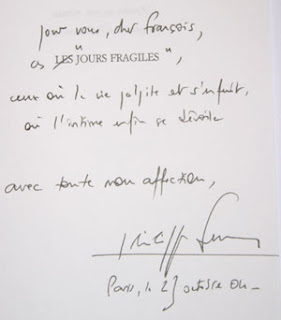 pour vous, cher françois,
ces "LES JOURS FRAGILES",
ceux où la vie palpite et s'enfuit,
où l'intime enfin se dévoile
avec toute mon affection,
Philippe
Paris, le 23 octobre 04_